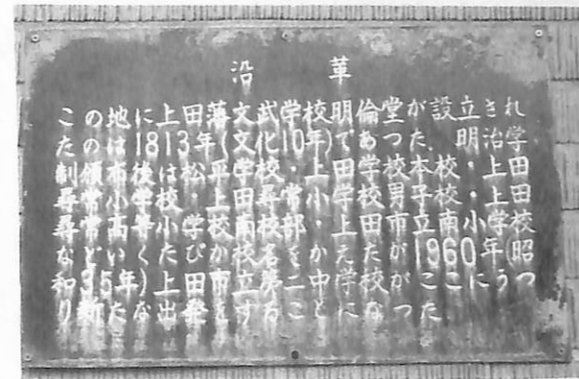 沿革
この地に上田藩文武学校明倫堂が設立され
たのは1813年(文化10年)であった。明治学
制頒布後は松平学校・上田学校本校・上田
尋常小学校・上田尋常小学校男子校・上田
尋常高等小学校南部・上田市立南小学校
などといくたびか校名をかえたが1960年(昭
和35年)上田市立第二中学校がここにうつ
り新たな出発をすることになった